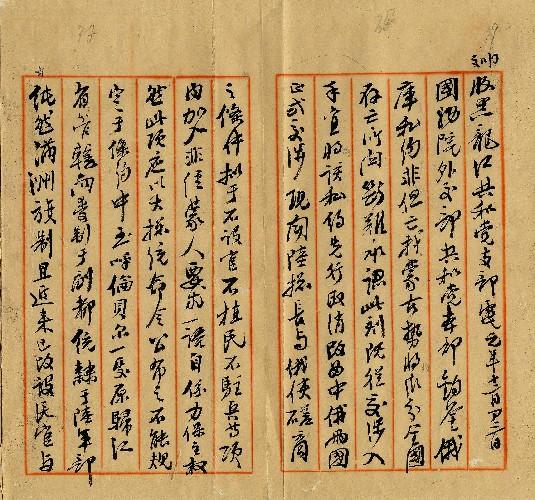 收黑龍江共和党支部電 元年十二月
國務院外交部共和党本部鈞鑒俄
庫私約非但亡我蒙古勢將瓜分全國
存亡所關斷難承認此刻既從交涉入
手宜將該私約先行取消改由中俄兩國
正式交涉現聞陸揔長与俄使磋商
之條件拟于不設官不植民不駐兵等項
內加入非經蒙人要求一語自係力保主权
然此項應以大揔统命令公布之不能規
定于條約中至呼倫貝尔一處原歸江
省管轄而制于副都统隸于陸軍部
純然滿洲旗制且近来已改設民官与